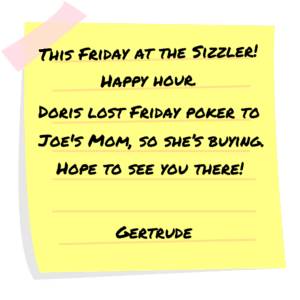 This Friday at the Sizzler!
Happy hour.
Doris lost Friday poker to
Joe's Mom, so she's buying.
Hope to see you there!
Gertrude